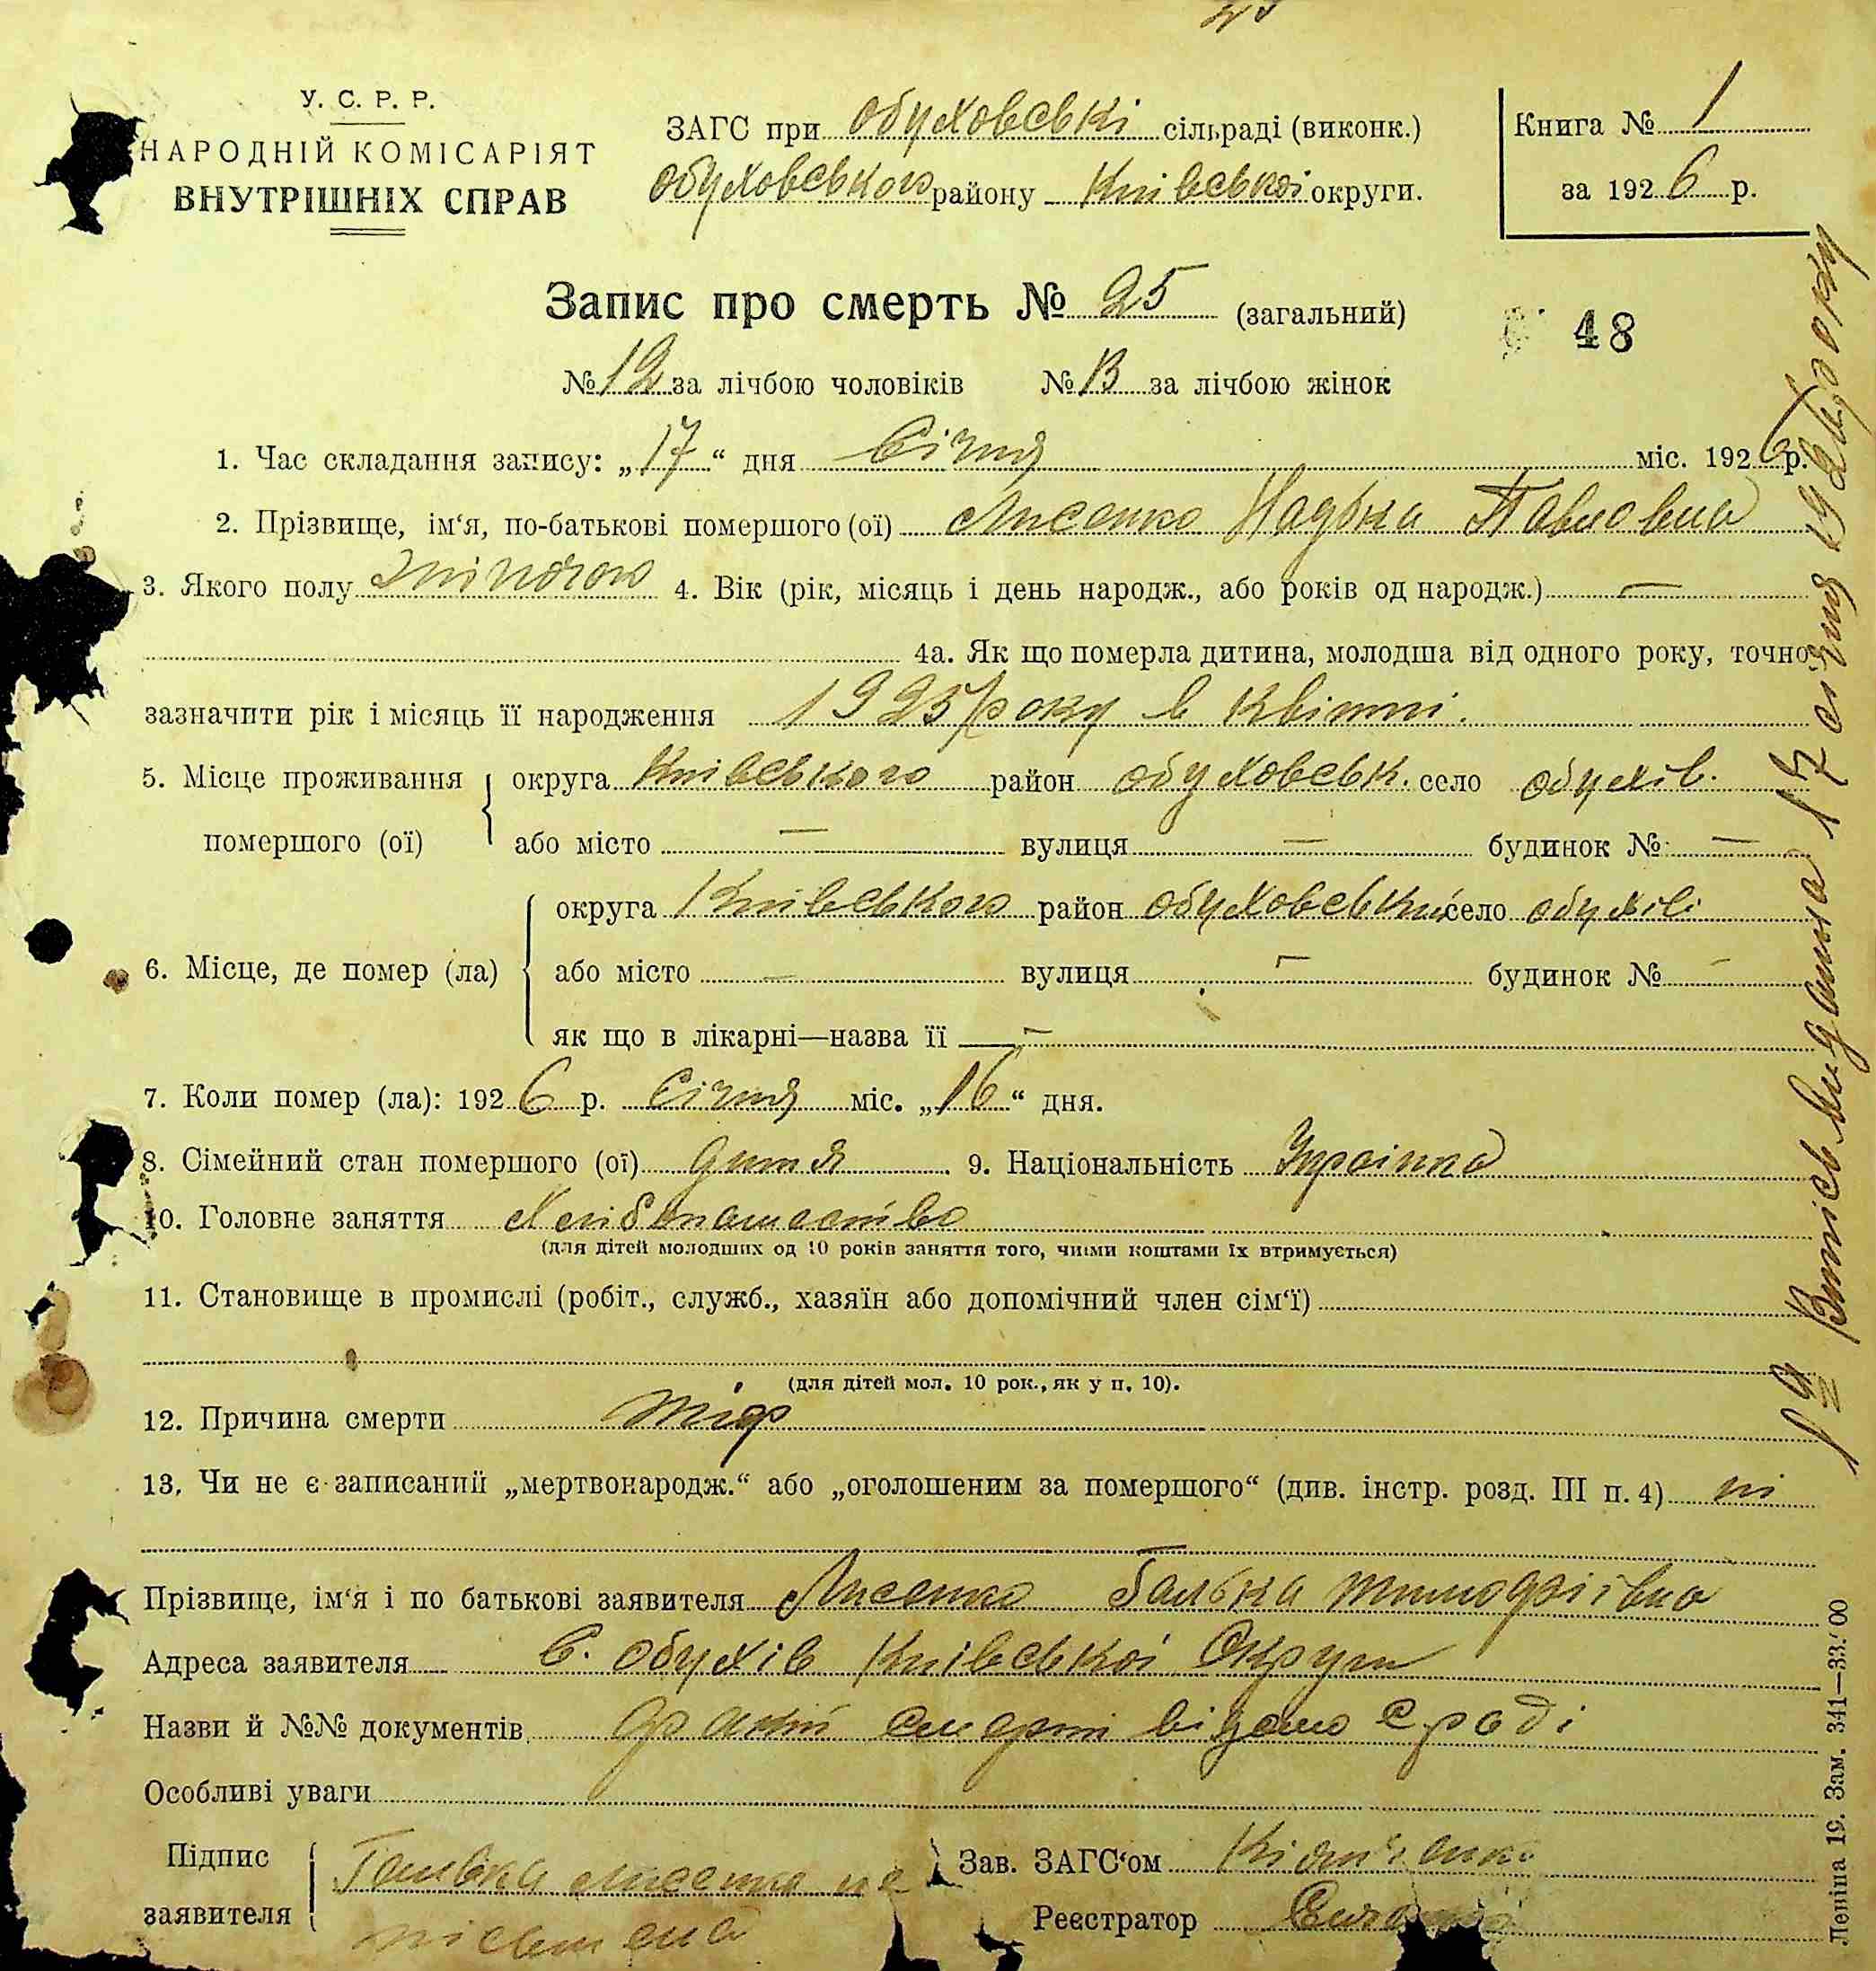 У. С. Р. Р.
НАРОДНІЙ КОМІСАРІЯТ
ВНУТРІШНІХ СПРАВ
ЗАГС при Обуховські сільраді (виконк.)
Обуховського району Київської округи.
Книга № 1
за 1926 р.
Запис про смерть № 25 (загальний)
48
№ 12 за лічбою чоловіків № 13 за лічбою жінок
1. Час складання запису: „17“ дня Січня міс. 1926 р.
2. Прізвище, ім‘я, по-батькові помершого (ої) Лисенко Надька Павловна
3. Якого полу жіночого 4. Вік (рік, місяць і день народж., або років од народж.) —
4а. Як що померла дитина, молодша від одного року, точно
зазначити рік і місяць її народження 1925 року в квітні.
5. Місце проживання помершого (ої) округа Київського район Обуховськ. село Обухів.
або місто — вулиця — будинок № —
6. Місце, де помер (ла) округа Київського район Обуховський село Обухів
або місто — вулиця — будинок № —
як що в лікарні—назва її —
7. Коли помер (ла): 1926 р. Січня міс. „16“ дня.
8. Сімейний стан помершого (ої) дитя 9. Національність Українка
10. Головне заняття Хліборашество
(для дітей молодших од 10 років заняття того, чиїми коштами їх втримується)
11. Становище в промислі (робіт., служб., хазяїн або допомічний член сім‘ї)
(для дітей мол. 10 рок., як у п. 10).
12. Причина смерти
13. Чи не є записаний „мертвонародж.“ або „оголошеним за помершого“ (див. інстр. розд. III п. 4) ні
Прізвище, ім‘я і по батькові заявителя Лисенко Галька Тимофіївна
Адреса заявителя С. Обухів Київської Округи
Назви й №№ документів факт смерті відомо с раді
Особливі уваги
Підпис заявителя Галька Лисенко не
письмена
Зав. ЗАГС‘ом
Реєстратор
Витісь видана 17 січня 1926 року
Леніна 19. Зам. 341—33.